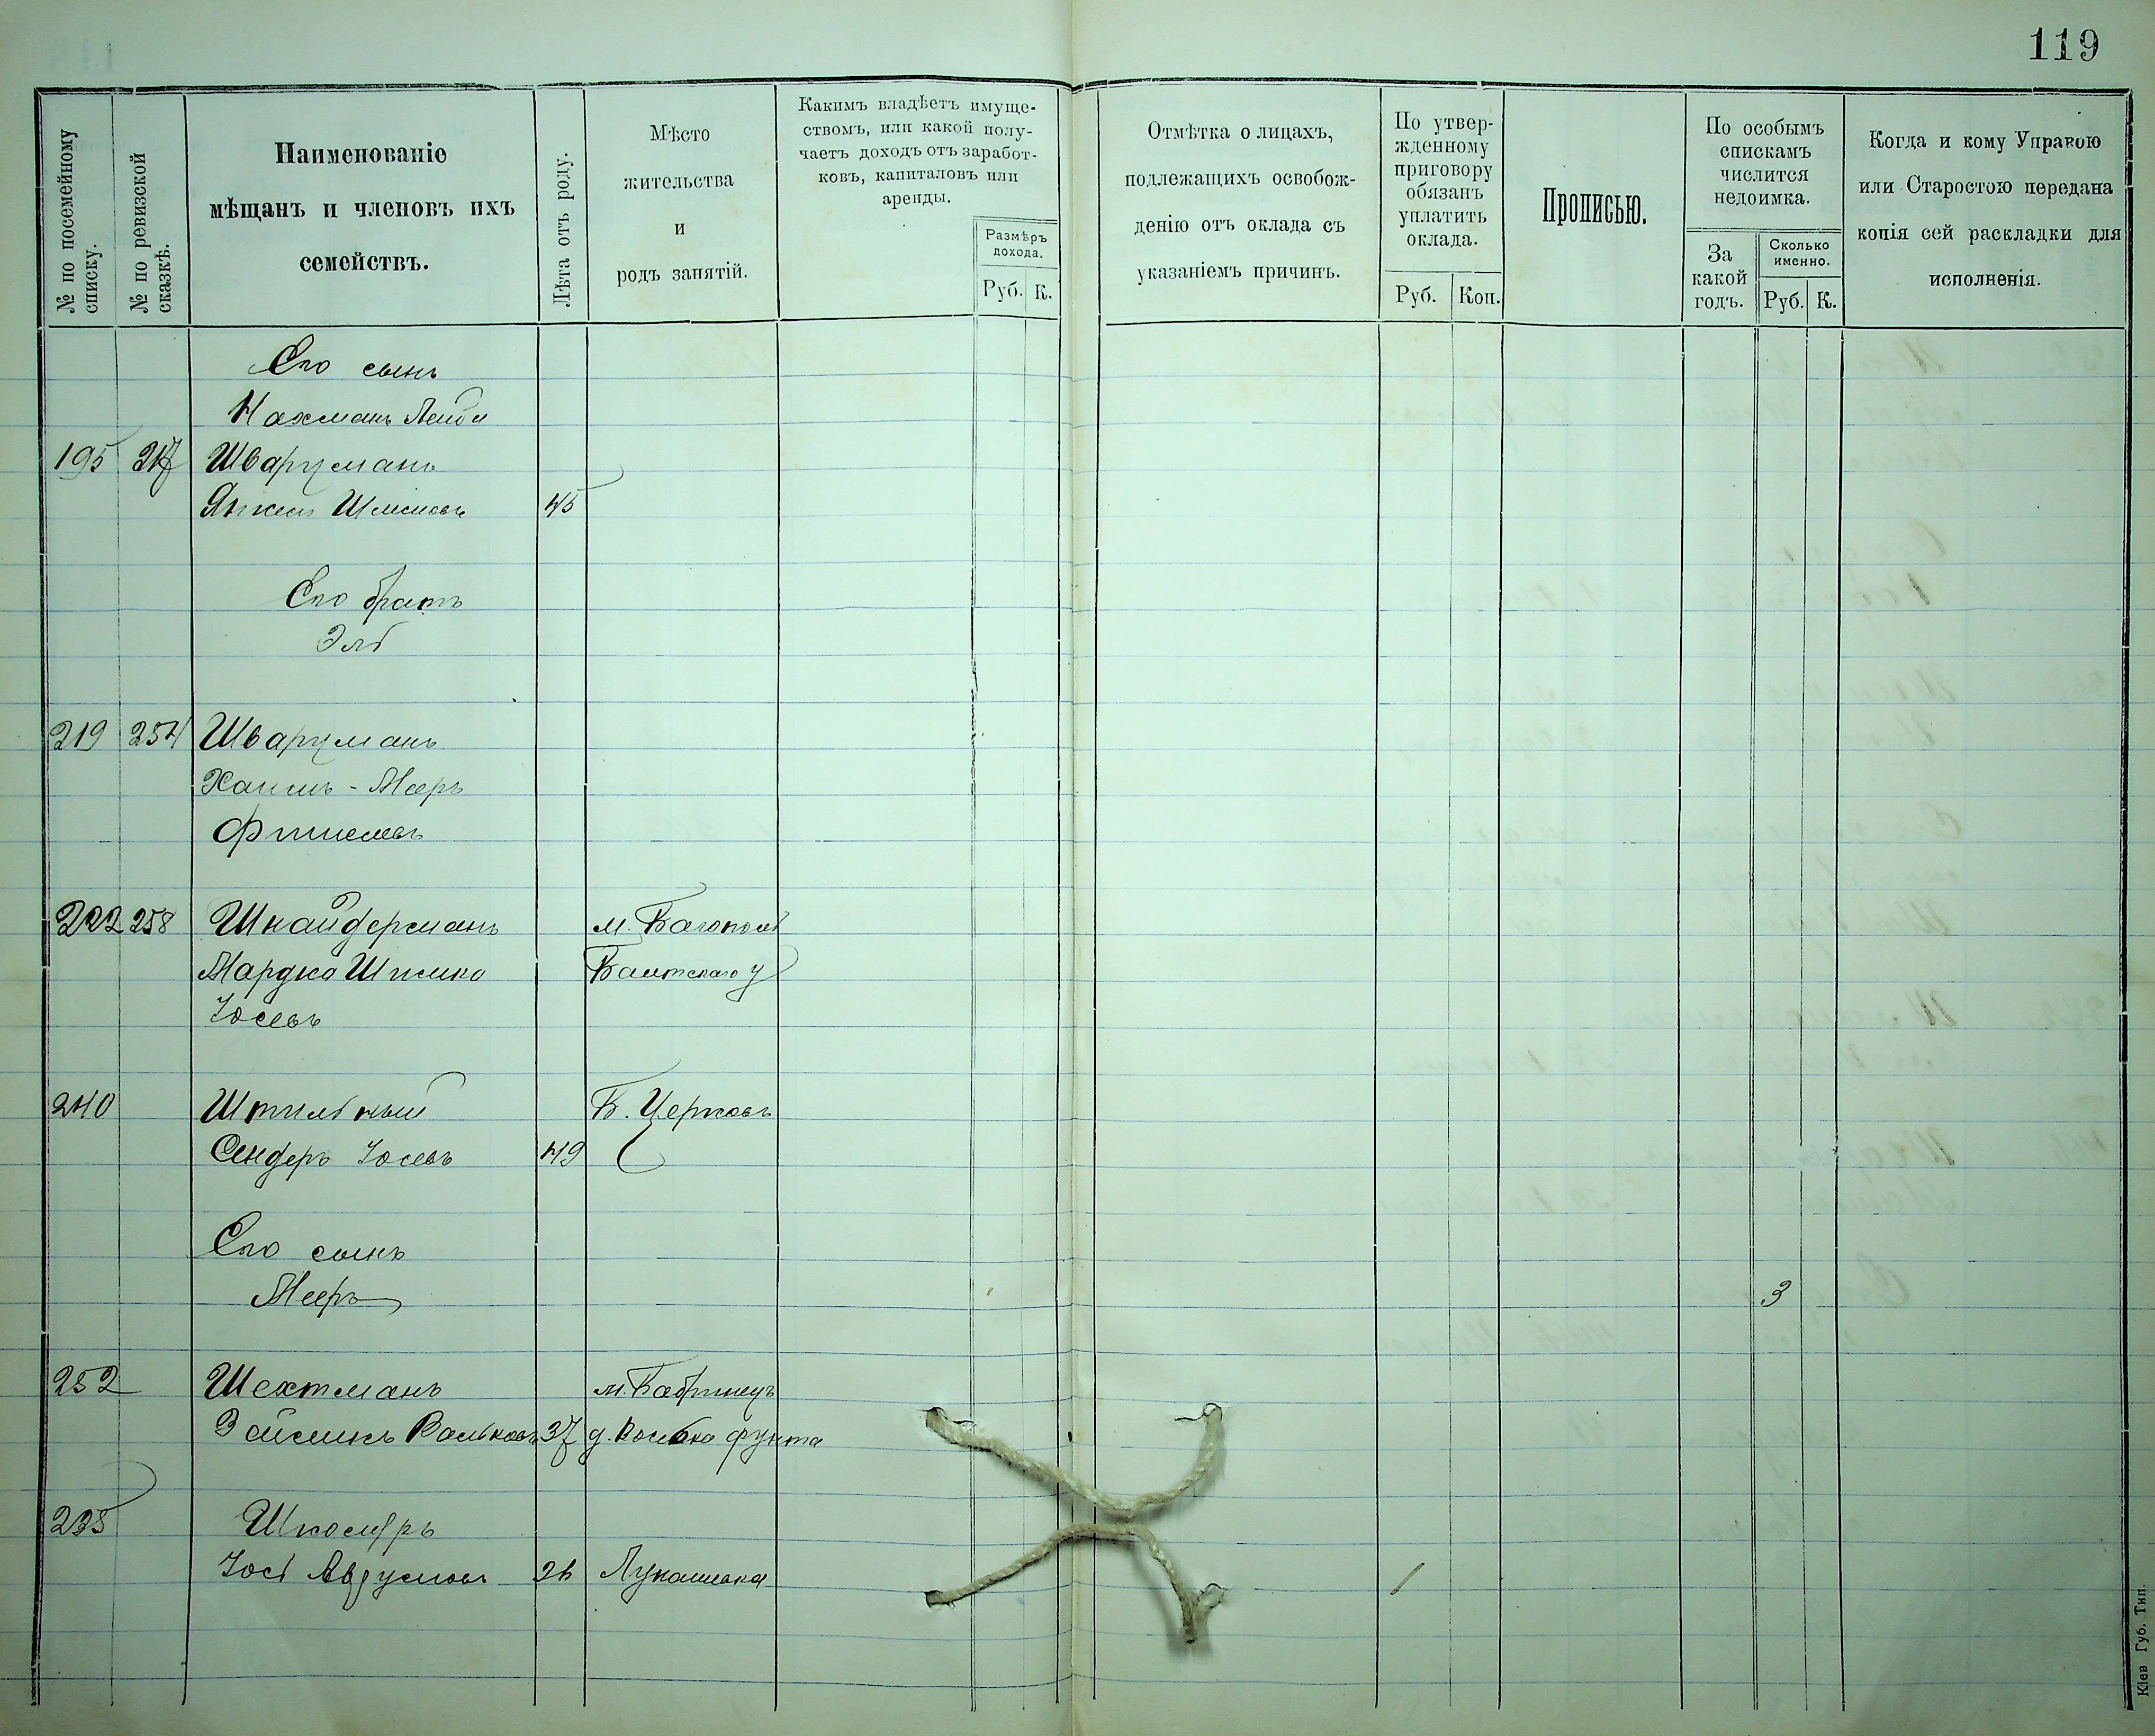 119
№ по посемейному списку.
№ по ревизской сказкѣ.
Наименованіе
мѣщанъ и членовъ ихъ
семействъ.
Лѣта отъ роду.
Мѣсто
жительства
и
родъ занятій.
Какимъ владѣетъ имуще-
ствомъ, или какой полу-
чаетъ доходъ отъ заработ-
ковъ, капиталовъ или
аренды.
Размѣръ
дохода.
Руб. К.
Отмѣтка о лицахъ,
подлежащихъ освобож-
денію отъ оклада съ
указаніемъ причинъ.
По утвер-
жденному
приговору
обязанъ
уплатить
оклада.
Руб. Коп.
Прописью.
По особымъ
спискамъ
числится
недоимка.
За
какой
годъ.
Сколько
именно.
Руб. К.
Когда и кому Управою
или Старостою передана
копія сей раскладки для
исполненія.
Его сынъ
Нахманъ Лейба
195 217 Шварцманъ
Янкель 45
Его братъ
Эль
219 254 Шварцманъ
Хаимъ-Мееръ
Фишелевъ
222 258 Шнайдерманъ м. Богополь
Мардко Шлиома Балтскаго у
Іосевъ
240 Штильный Б. Церковь
Сендеръ Іосевъ 49
Его сынъ
Мееръ 3
252 Шехтманъ м. Бобринецъ
Вольковъ 37 д.
Іось Аврумовъ 26 Лукашовка 1
Кіев Губ. Тип.